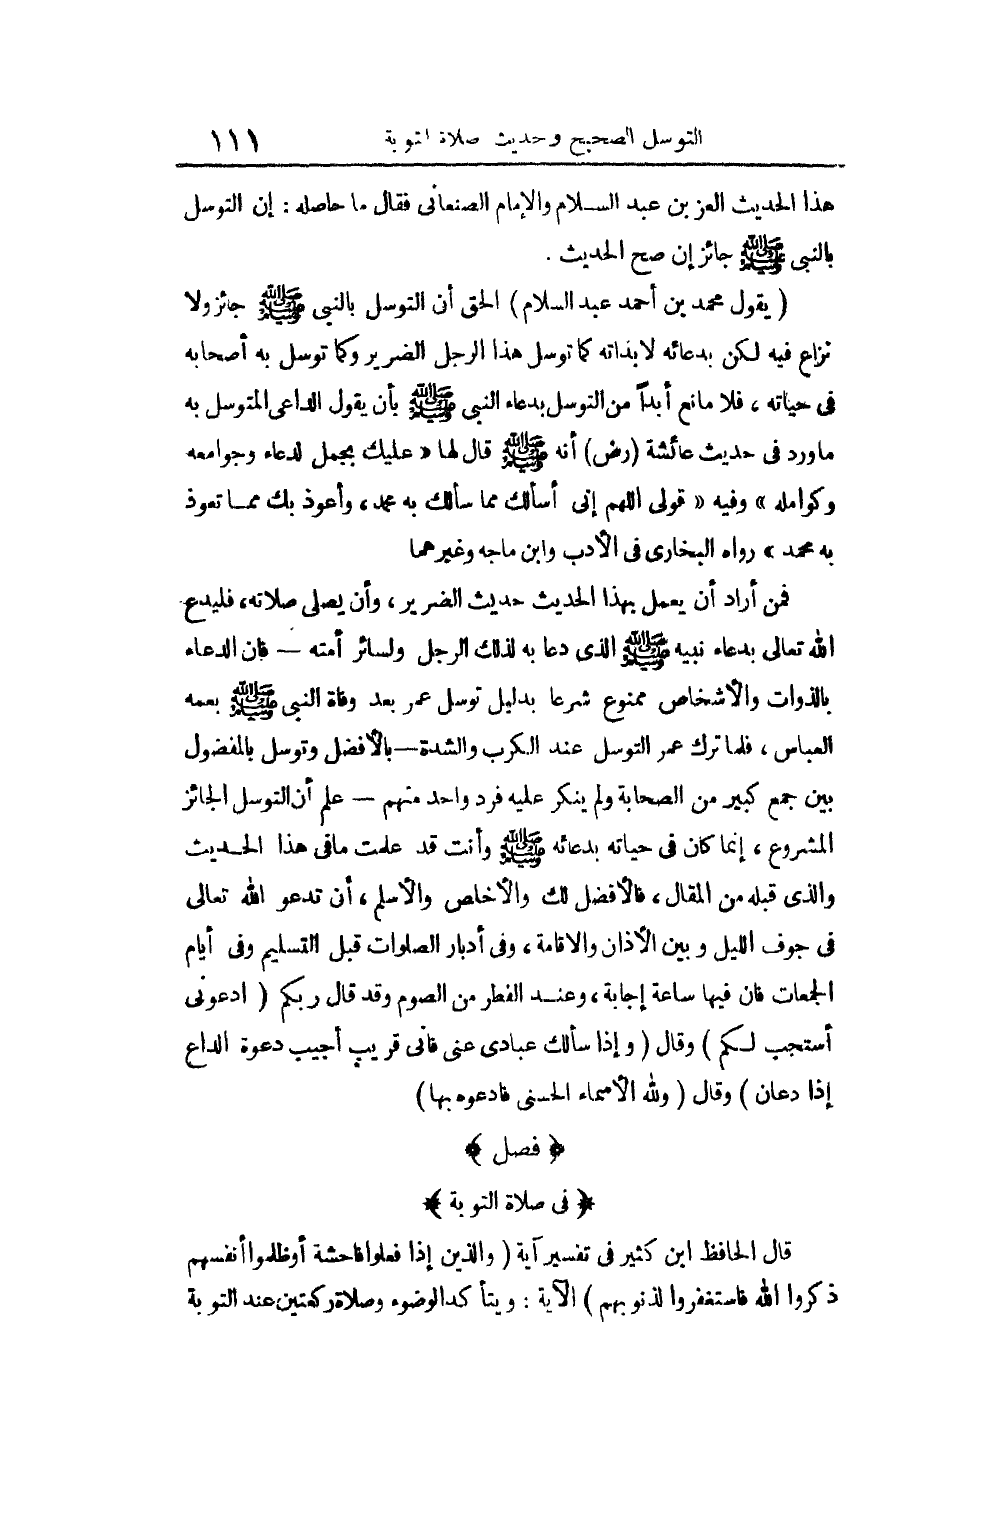 التوسل الصحيح وحديث صلاة التوبة ١١١
هذا الحديث العز بن عبد السلام والإمام الصنعانى فقال ما حاصله : إن التوسل
بالنبى ﷺ جائز إن صح الحديث .
( يقول محمد بن أحمد عبد السلام ) الحق أن التوسل بالنبى ﷺ جائز ولا
نزاع فيه لكن بدعائه لا بذاته كما توسل هذا الرجل الضرير وكما توسل به أصحابه
فى حياته ، فلا مانع أبداً من التوسل بدعاء النبى ﷺ بأن يقول الداعى المتوسل به
ماورد فى حديث عائشة (رض) أنه ﷺ قال لها « عليك بجمل لدعاء وجوامعه
وكوامله » وفيه « قولى اللهم إنى أسألك مما سألك به محمد ، وأعوذ بك ممـا تعوذ
به محمد » رواه البخارى فى الأدب وابن ماجه وغيرهما
فمن أراد أن يعمل بهذا الحديث حديث الضرير ، وأن يصلى صلاته ، فليدع
الله تعالى بدعاء نبيه ﷺ الذى دعا به لذلك الرجل ولسائر أمته – فان الدعاء
بالذوات والأشخاص ممنوع شرعا بدليل توسل عمر بعد وفاة النبى ﷺ بعمه
العباس ، فلما ترك عمر التوسل عند الكرب والشدة – بالأفضل وتوسل بالمفضول
بين جمع كبير من الصحابة ولم ينكر عليه فرد واحد منهم – علم أن التوسل الجائز
المشروع ، إنما كان فى حياته بدعائه ﷺ وأنت قد علمت مافى هذا الحـديث
والذى قبله من المقال ، فالأفضل لك والأخلص والأسلم ، أن تدعو الله تعالى
فى جوف الليل وبين الأذان والاقامة ، وفى أدبار الصلوات قبل التسليم وفى أيام
الجمعات فان فيها ساعة إجابة ، وعنـد الفطر من الصوم وقد قال ربكم ( ادعونى
أستجب لـكم ) وقال ( وإذا سألك عبادى عنى فانى قريب أجيب دعوة الداع
إذا دعان ) وقال ( ولله الأسماء الحسنى فادعوه بها )
﴿ فصل ﴾
﴿ فى صلاة التوبة ﴾
قال الحافظ ابن كثير فى تفسير آية ( والذين إذا فعلوا فاحشة أو ظلموا أنفسهم
ذكروا الله فاستغفروا لذنوبهم ) الآية : ويتأكد الوضوء وصلاة ركعتين عند التوبة